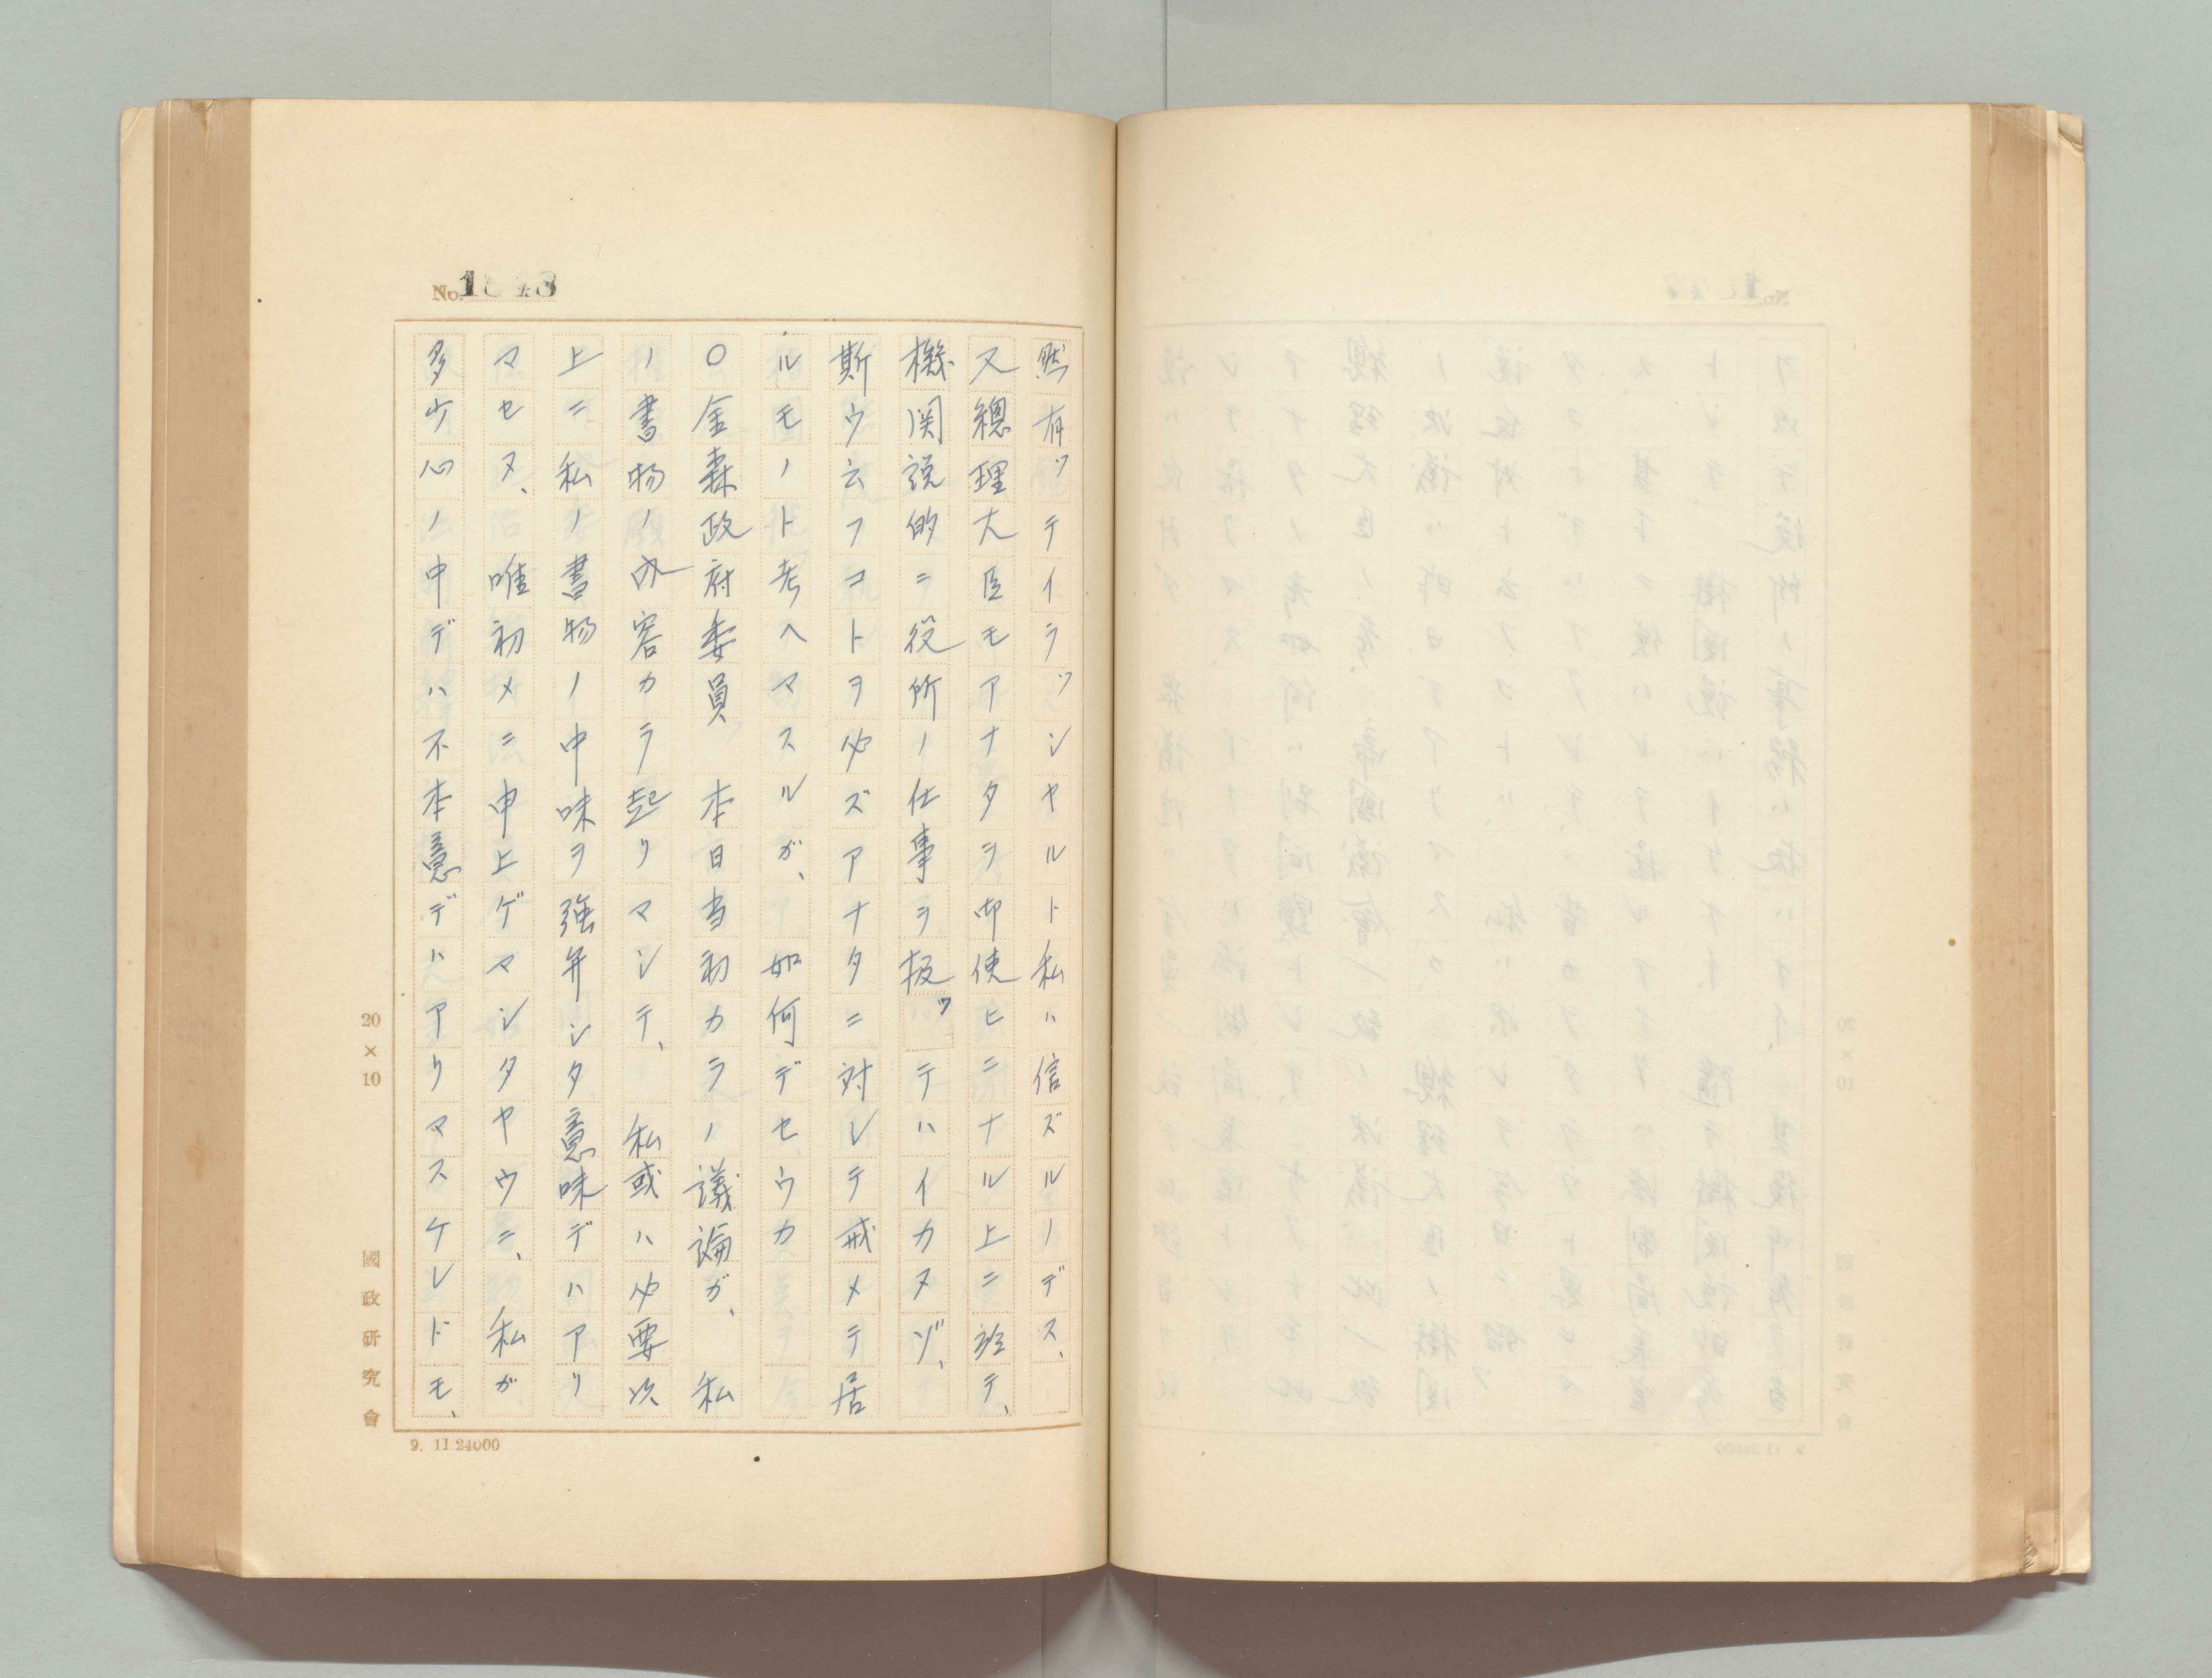 No. 1848
然有ッテイラッシャルト私ハ信ズルノデス、
又總理大臣モアナタヲ御使ヒニナル上ニ於テ、
機関説的ニ役所ノ仕事ヲ扱ッテハイカヌゾ、
斯ウ云フコトヲ必ズアナタニ対シテ戒メテ居
ルモノト考ヘマスルガ、如何デセウカ
○金森政府委員　本日当初カラノ議論ガ、私
ノ書物ノ内容カラ起リマシテ、私或ハ必要以
上ニ私ノ書物ノ中味ヲ強弁シタ意味デハアリ
マセヌ、唯初メニ申上ゲマシタヤウニ、私ガ
多少心ノ中デハ不本意デハアリマスケレドモ、
20×10
國政研究會
9. 11 24000